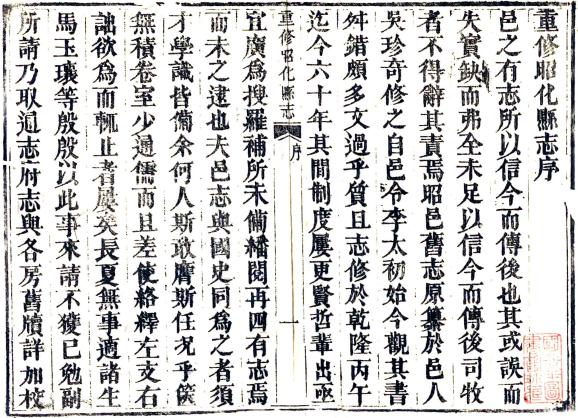 重修昭化縣志序
邑之有志所以信今而傳後也其或誤而
失實缺而弗全未足以信今而傳後司牧
者不得辭其責焉昭邑舊志原纂於邑人
吳珍奇修之自邑令李太初始今觀其書
舛錯頗多文過乎質且志修於乾隆丙午
迄今六十年其間制度屢更賢哲輩出亟
重修昭化縣志 序 一
宜廣為搜羅補所未備繙閱再四有志焉
而未之逮也夫邑志與國史同為之者須
才學識皆備余何人斯敢膺斯任況乎篋
無積卷室少通儒而且差使絡繹左支右
詘欲為而輒止者屢矣長夏無事適諸生
馬玉瓖等殷殷以此事來請不獲已勉副
所請乃取通志府志與各房舊牘詳加校